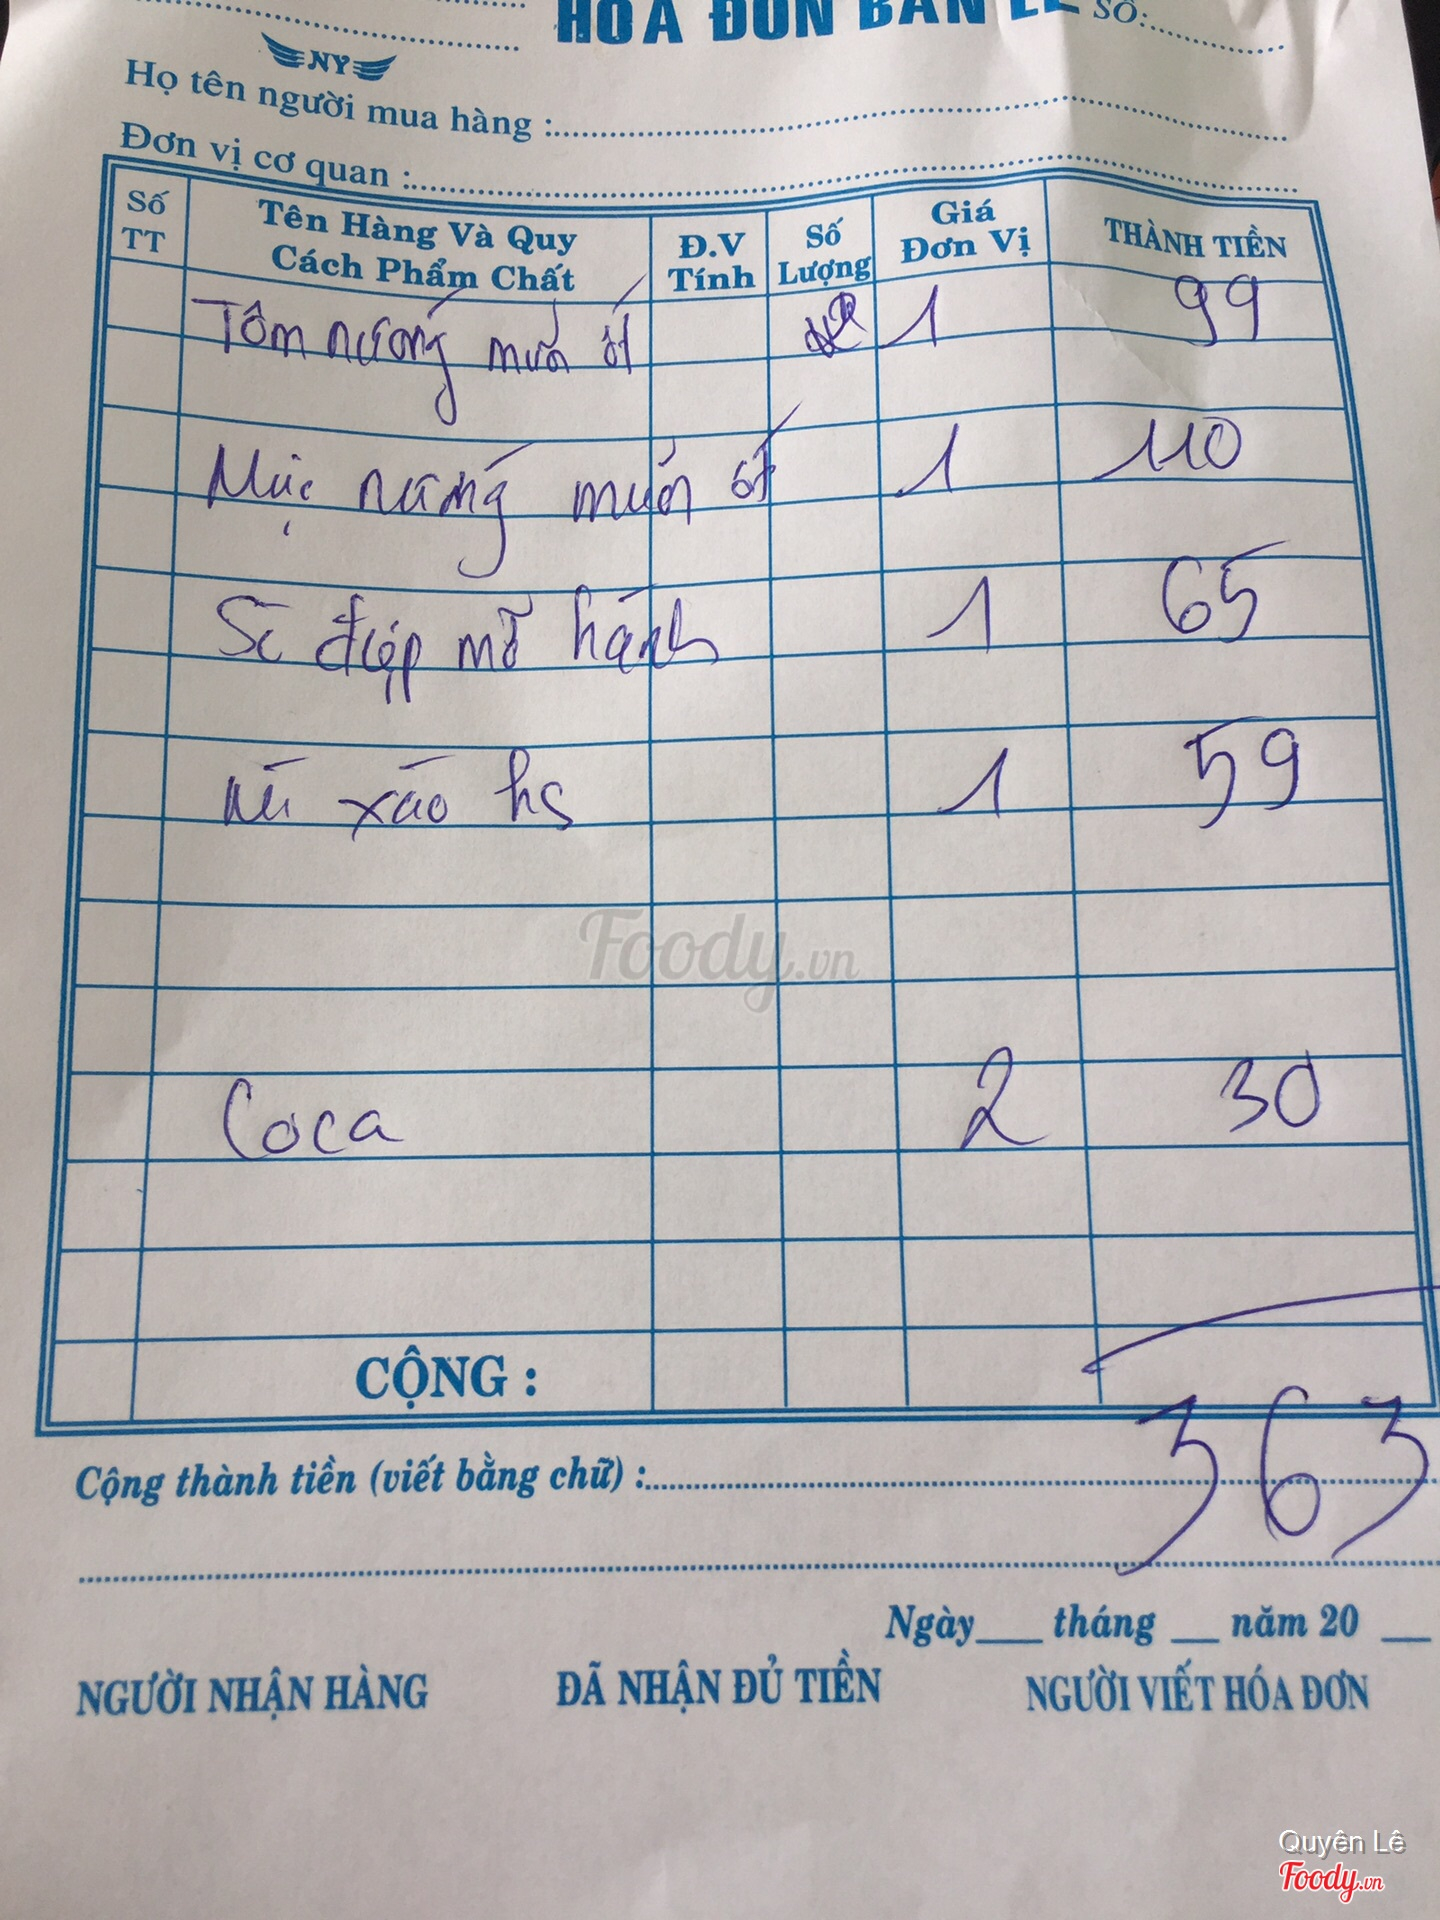 HÓA ĐƠN BÁN LẺ SỐ:
NY
Họ tên người mua hàng :
Đơn vị cơ quan :
Số TT Tên Hàng Và Quy Cách Phẩm Chất Đ.V Tính Số Lượng Giá Đơn Vị THÀNH TIỀN
Tôm nướng muối ớt 1 99
Mực nướng muối ớt 1 110
Sò điệp mỡ hành 1 65
Mì xào hs 1 59
Foody.vn
Coca 2 30
CỘNG :
363
Cộng thành tiền (viết bằng chữ) :
Ngày tháng năm 20
NGƯỜI NHẬN HÀNG ĐÃ NHẬN ĐỦ TIỀN NGƯỜI VIẾT HÓA ĐƠN
Quyên Lê
Foody.vn